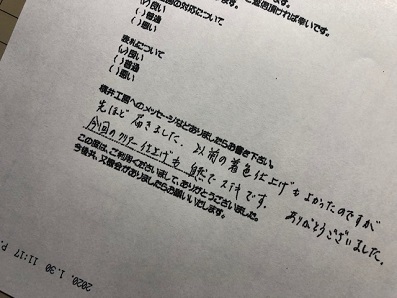 の対応について
(✓)良い
( )普通
( )悪い
表札について
(✓)良い
( )普通
( )悪い
桜井工房へのメッセージなどありましたらお書き下さい。
先ほど届きました。以前の着色仕上げもよかったのですが
今回のクリアー仕上げも自然でステキです。ありがとうございました。
この度は、ご利用くださいまして、ありがとうございました。
今後共、又機会がありましたらお願いいたします。
2020. 1.30 11:17 P.